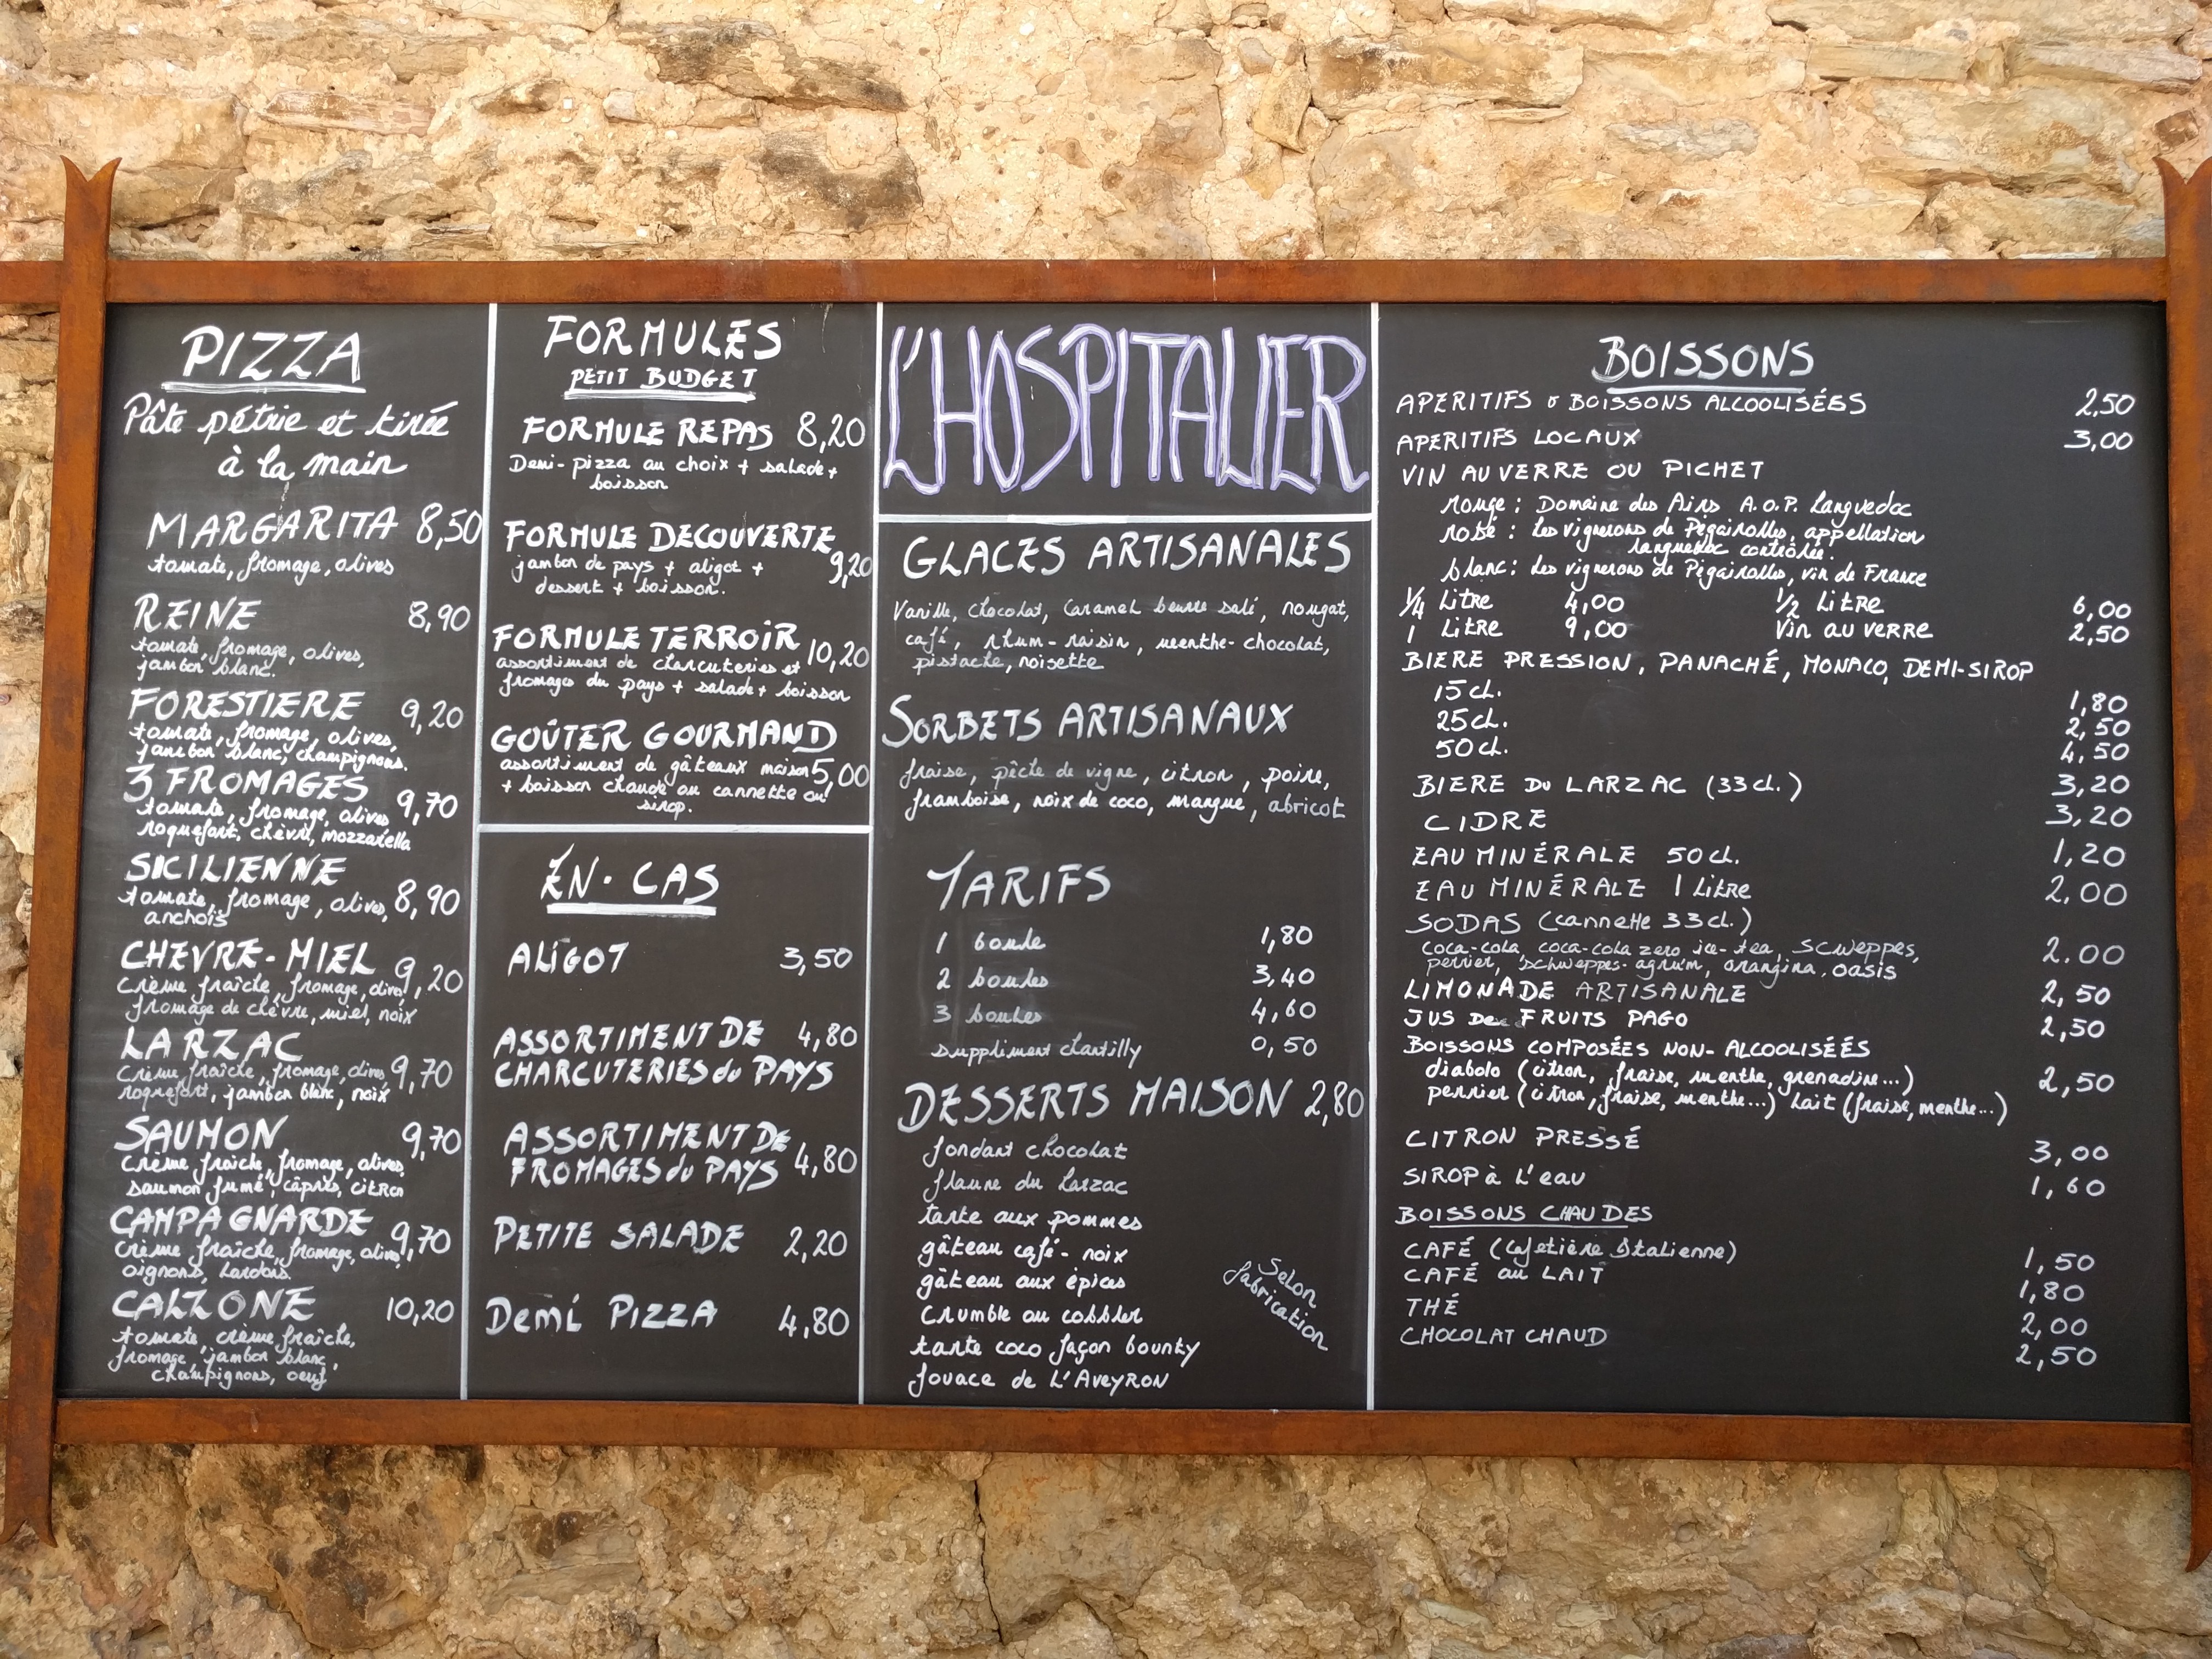 PIZZA
Pâte pétrie et tirée
à la main
MARGARITA 8,50
tomate, fromage, olives
REINE 8,90
tomate, fromage, olives,
jambon blanc.
FORESTIERE 9,20
tomate, fromage, olives,
jambon blanc, champignons.
3 FROMAGES 9,70
tomate, fromage, olives
roquefort, chèvre, mozzarella
SICILIENNE
tomate, fromage, olives, 8,90
anchois
CHEVRE-MIEL 9,20
crème fraîche, fromage, olives
fromage de chèvre, miel, noix
LARZAC
Crème fraîche, fromage, olives 9,70
roquefort, jambon blanc, noix
SAUMON 9,70
crème fraîche, fromage, olives,
saumon fumé, câpres, citron
CAMPAGNARDE 9,70
crème fraîche, fromage, olives,
oignons, lardons.
CALZONE 10,20
tomate, crème fraîche,
fromage, jambon blanc,
champignons, oeuf
FORMULES
PETIT BUDGET
FORMULE REPAS 8,20
Demi-pizza au choix + salade +
boisson
FORMULE DECOUVERTE
jambon de pays + aligot + 9,20
dessert + boisson.
FORMULE TERROIR 10,20
assortiment de charcuteries et
fromages du pays + salade + boisson
GOÛTER GOURMAND
assortiment de gâteaux maison 5,00
+ boisson chaude ou cannette ou
sirop.
EN-CAS
ALIGOT 3,50
ASSORTIMENT DE 4,80
CHARCUTERIES du PAYS
ASSORTIMENT DE
FROMAGES du PAYS 4,80
PETITE SALADE 2,20
Demi PIZZA 4,80
L'HOSPITALIER
GLACES ARTISANALES
Vanille, chocolat, caramel beurre salé, nougat,
café, rhum-raisin, menthe-chocolat,
pistache, noisette
SORBETS ARTISANAUX
fraise, pêche de vigne, citron, poire,
framboise, noix de coco, mangue, abricot
TARIFS
1 boule 1,80
2 boules 3,40
3 boules 4,60
suppliment chantilly 0,50
DESSERTS MAISON 2,80
fondant chocolat
flaune du Larzac
tarte aux pommes
gâteau café-noix
gâteau aux épices
Crumble ou cobbler
tarte coco façon bounty
fouace de L'AVEYRON
Selon
fabrication
BOISSONS
APERITIFS & BOISSONS ALCOOLISÉES 2,50
APERITIFS LOCAUX 3,00
VIN AU VERRE OU PICHET
rouge : Domaine des Airs A.O.P. Languedoc
rosé : Les vignerons de Pégairolles, appellation
languedoc contrôlée.
blanc : Les vignerons de Pégairolles, vin de France
1/4 Litre 4,00 1/2 Litre 6,00
1 Litre 9,00 Vin au verre 2,50
BIERE PRESSION, PANACHÉ, MONACO, DEMI-SIROP
15 cl. 1,80
25 cl. 2,50
50 cl. 4,50
BIERE DU LARZAC (33 cl.) 3,20
CIDRE 3,20
EAU MINÉRALE 50 cl. 1,20
EAU MINÉRALE 1 Litre 2,00
SODAS (cannette 33 cl.)
coca-cola, coca-cola zero ice-tea, schweppes, 2.00
perrier, schweppes-agrum, orangina, oasis
LIMONADE ARTISANALE 2,50
JUS De FRUITS PAGO 2,50
BOISSONS COMPOSÉES NON-ALCOOLISÉÉS
diabolo (citron, fraise, menthe, grenadine...) 2,50
perrier (citron, fraise, menthe...) Lait (fraise, menthe...)
CITRON PRESSÉ 3,00
SIROP à L'eau 1,60
BOISSONS CHAUDES
CAFÉ (Cafetière Italienne) 1,50
CAFÉ au LAIT 1,80
THÉ 2,00
CHOCOLAT CHAUD 2,50